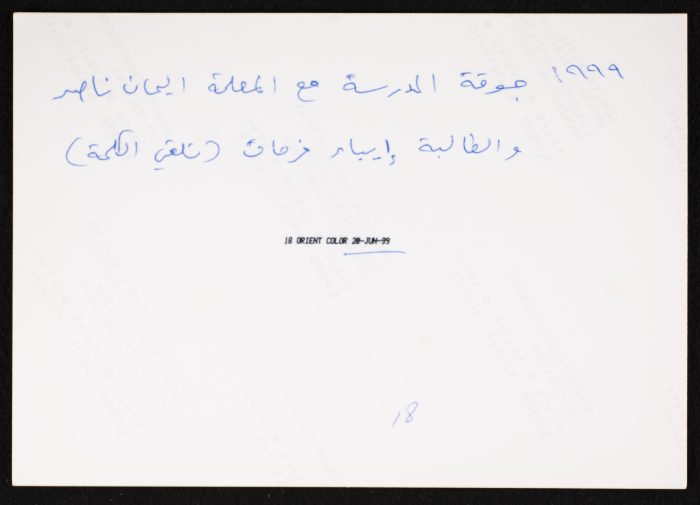 ١٩٩٩ جوقة المدرسة مع المعلمة ايمان ناصر
والطالبة إيباء فرحات (تلقي الكلمة)
18 ORIENT COLOR 20-JUN-99
18